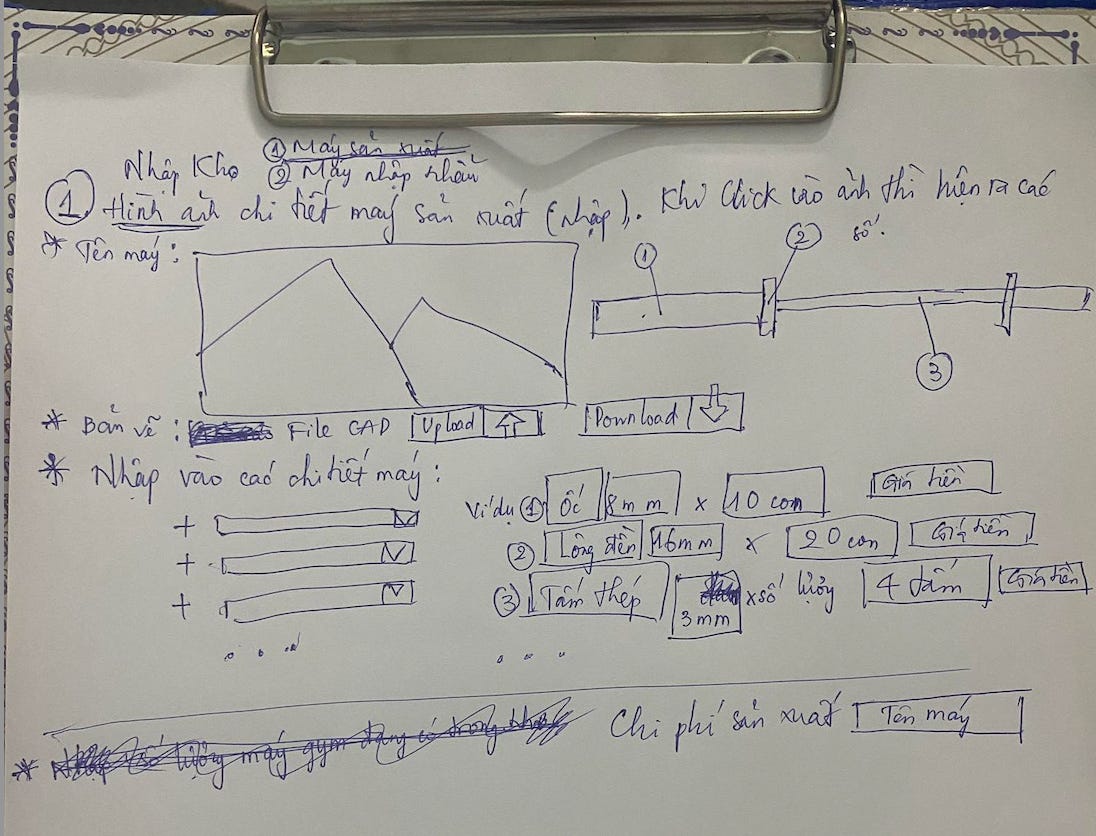 ① Máy sản xuất
Nhập Kho ② Máy nhập khẩu
① Hình ảnh chi tiết máy sản xuất (nhập). Khi Click vào ảnh thì hiện ra các số.
* Tên máy:
① ②
③
* Bản vẽ: File CAD Upload Download
* Nhập vào các chi tiết máy:
Ví dụ ① Ốc 8mm x 10 con Giá tiền
+
② Lông đền 16mm x 20 con Giá tiền
+
③ Tấm thép 3mm x số lượng 4 tấm Giá tiền
+
. . . . . .
Chi phí sản xuất Tên máy
* số lượng máy gym đang có trong kho